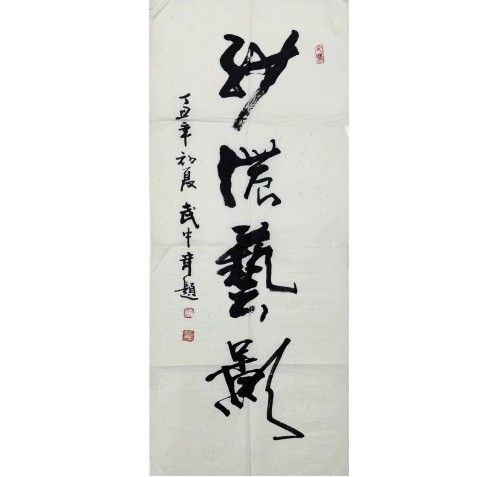 濃藝影
丁丑年初夏武中奇題